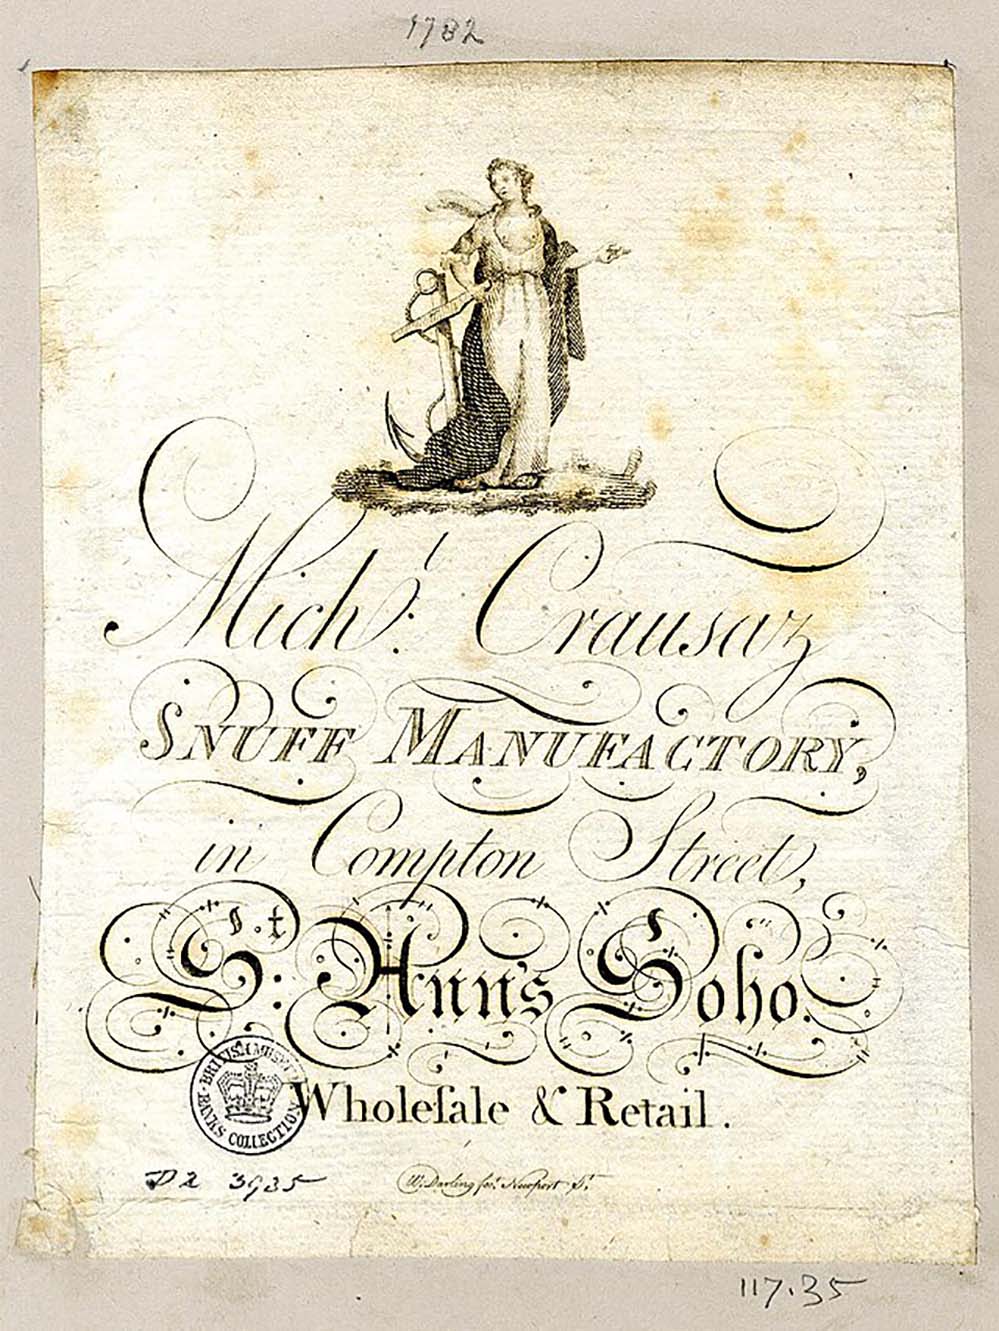 1782
Mich.l Crausaz
SNUFF MANUFACTORY,
in Compton Street,
St: Ann's Soho.
Wholeſale & Retail.
BRITISH MUSEUM
BANKS COLLECTION
D2 3935
W. Darling fec.t Newport St.
117.35